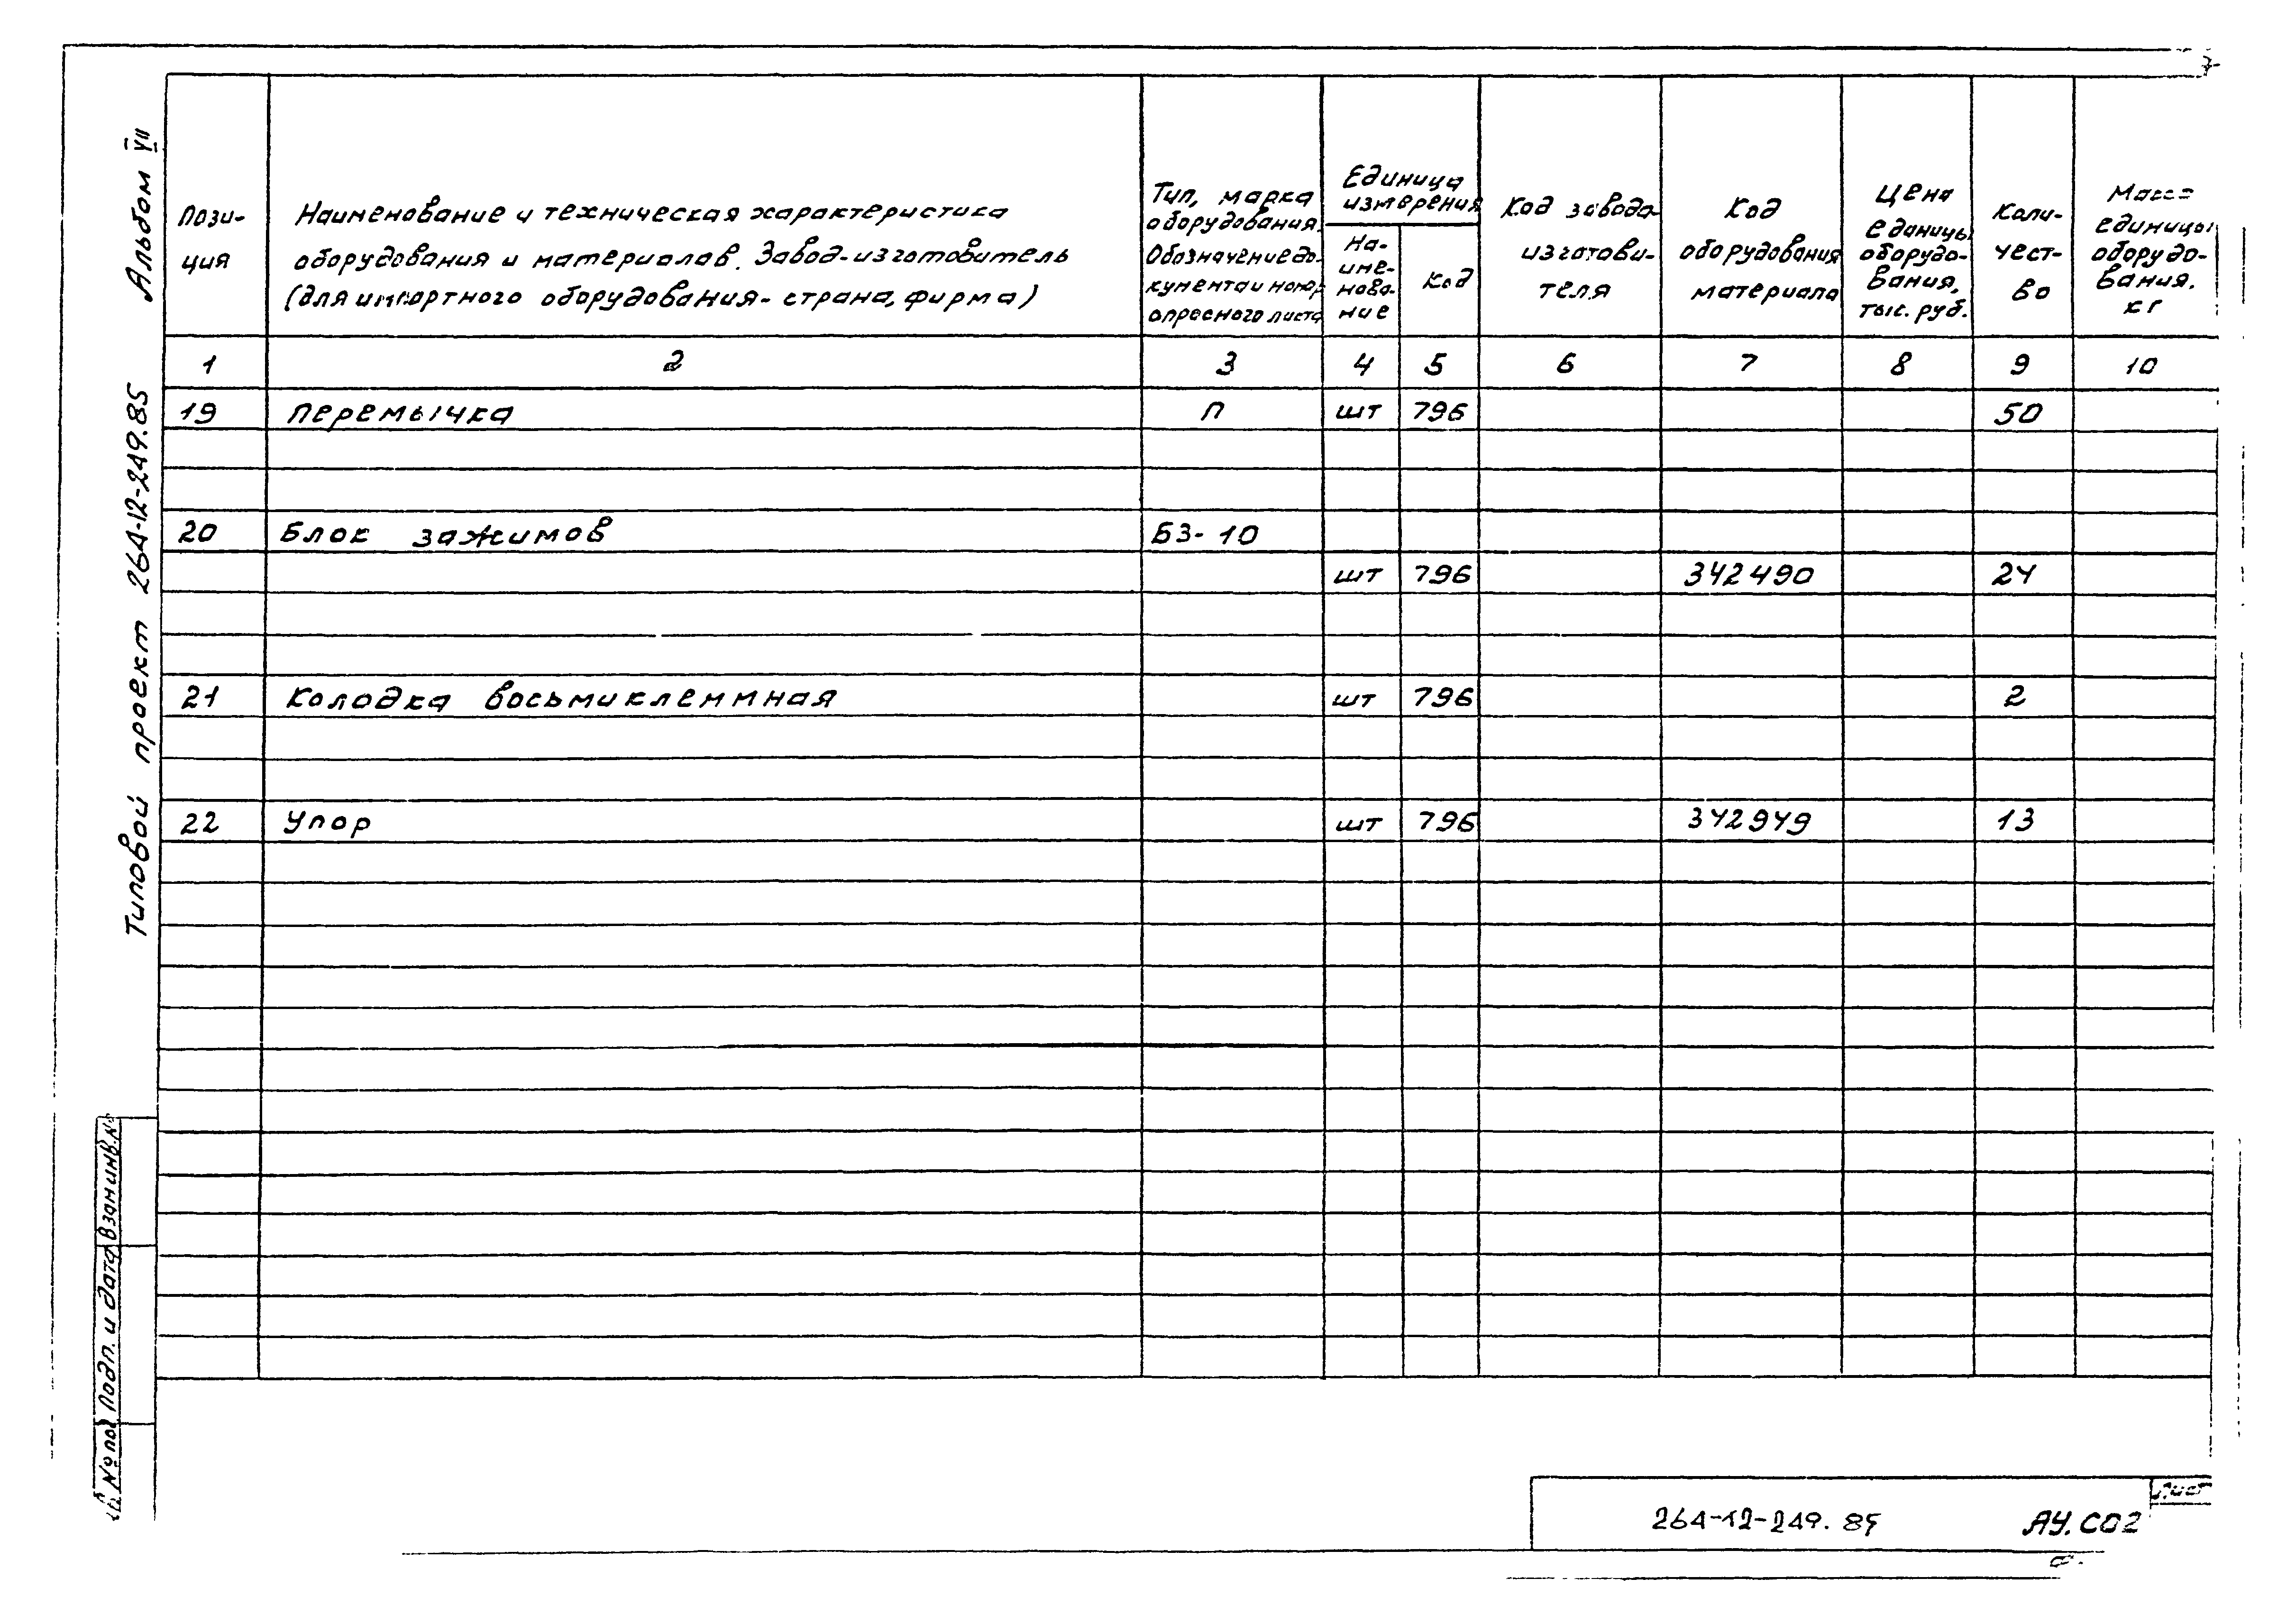 7
Альбом VII
Типовой проект 264-12-249.85
Пози-
ция
Наименование и техническая характеристика
оборудования и материалов. Завод-изготовитель
(для импортного оборудования- страна, фирма)
Тип, марка
оборудования.
Обозначение до-
кумента и номер
опросного листа
Единица
измерения
На-
име-
нова-
ние
Код
Код завода-
изготови-
теля
Код
оборудования
материала
Цена
единицы
оборудо-
вания,
тыс. руб.
Коли-
чест-
во
Масса
единицы
оборудо-
вания.
кг
1 2 3 4 5 6 7 8 9 10
19 Перемычка П шт 796 50
20 Блок зажимов БЗ-10
шт 796 342490 24
21 Колодка восьмиклеммная шт 796 2
22 Упор шт 796 342949 13
Взам инв. №
Подп. и дата
№ под
264-12-249.85 АУ.СО2
Лист